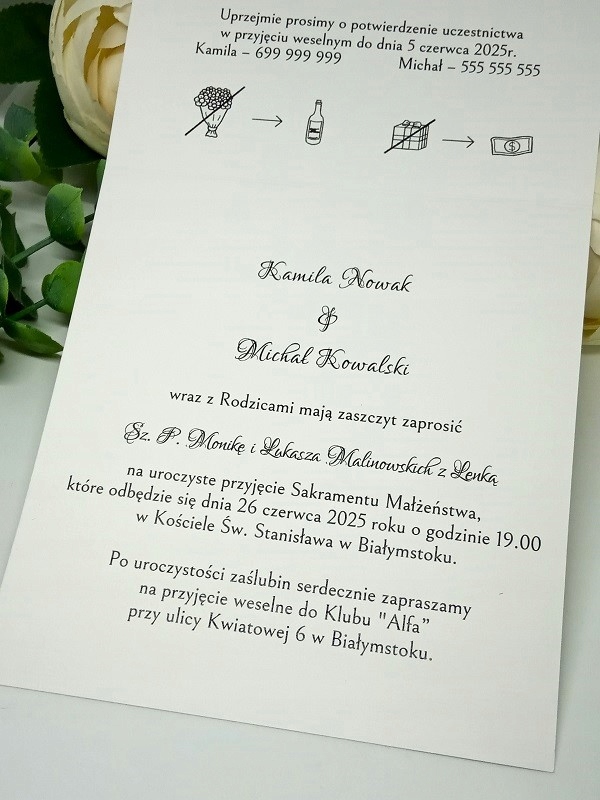 Uprzejmie prosimy o potwierdzenie uczestnictwa
w przyjęciu weselnym do dnia 5 czerwca 2025r.
Kamila – 699 999 999 Michał – 555 555 555
Kamila Nowak
&
Michał Kowalski
wraz z Rodzicami mają zaszczyt zaprosić
Sz. P. Monikę i Łukasza Malinowskich z Lenką
na uroczyste przyjęcie Sakramentu Małżeństwa,
które odbędzie się dnia 26 czerwca 2025 roku o godzinie 19.00
w Kościele Św. Stanisława w Białymstoku.
Po uroczystości zaślubin serdecznie zapraszamy
na przyjęcie weselne do Klubu "Alfa”
przy ulicy Kwiatowej 6 w Białymstoku.